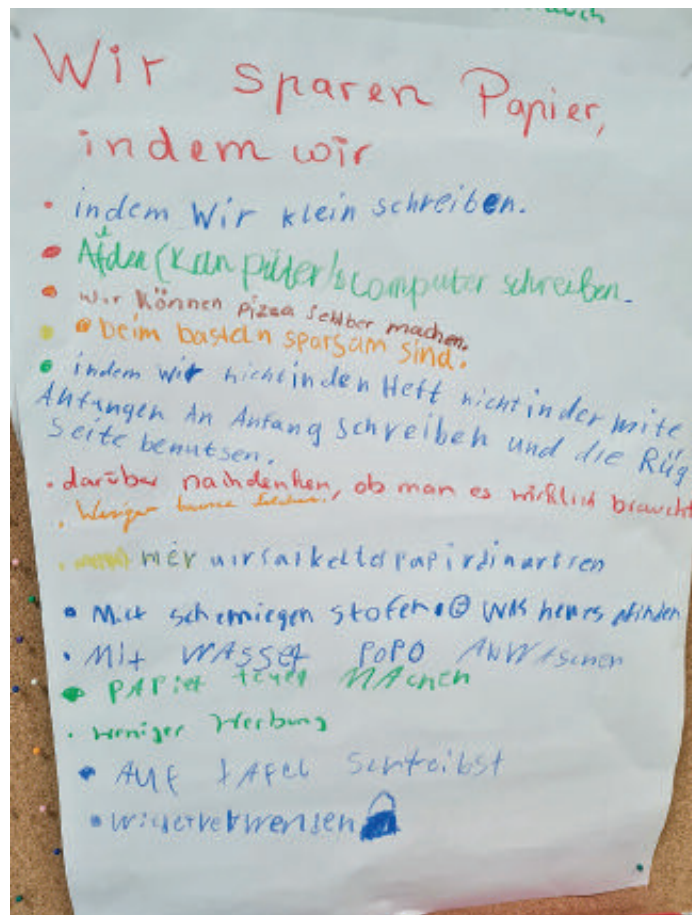 Wir sparen Papier,
indem wir
• indem Wir klein schreiben.
• computer schreiben.
• wir können pizza selber machen.
• beim basteln sparsam sind.
• indem wir nicht in den Heft nicht in der mite
Anfangen An Anfang schreiben und die Rüg
Seite benutsen.
• darüber nachdenken, ob man es wirklich braucht
• Weniger
• mer
• Mit stofen was
• Mit WAsser POPO AbWAschen
• PAPier teuer MAchen
• weniger Werbung
• AUf tAfel Schreibst
• widerverwenden